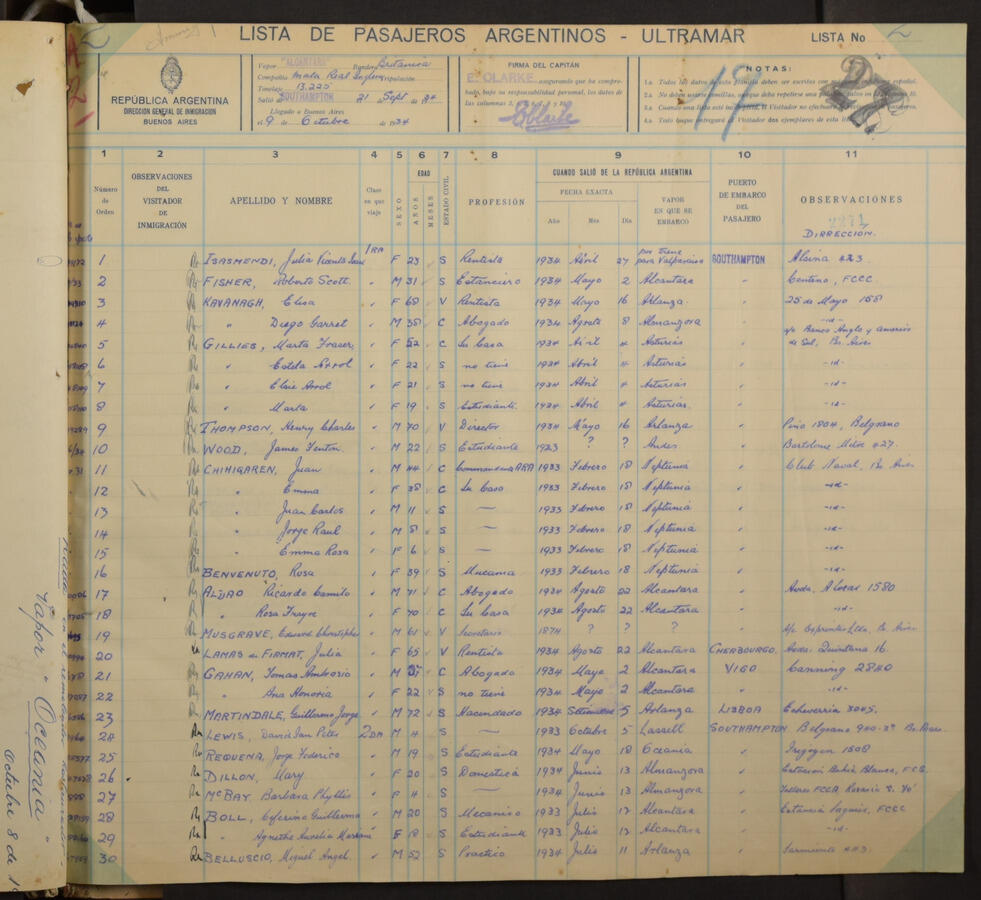 LISTA DE PASAJEROS ARGENTINOS - ULTRAMAR LISTA No 2
REPÚBLICA ARGENTINA
DIRECCIÓN GENERAL DE INMIGRACIÓN
BUENOS AIRES
Vapor "ALCANTARA" Bandera Britanica
Compañia Mala Real Inglesa Tripulación
Tonelaje 13.225
Salió de SOUTHAMPTON 21 Sept de 34
Llegado a Buenos Aires
el 9 de Octubre de 1934
FIRMA DEL CAPITÁN
E. CLARKE asegurando que ha compro-
bado, bajo su responsabilidad personal, los datos de
las columnas 3,
NOTAS:
19
1 2 3 4 5 6 7 8 9 10 11
Número de Orden
OBSERVACIONES DEL VISITADOR DE INMIGRACIÓN
APELLIDO Y NOMBRE
Clase en que viaja
SEXO
EDAD
AÑOS
MESES
ESTADO CIVIL
PROFESIÓN
CUANDO SALIÓ DE LA REPÚBLICA ARGENTINA
FECHA EXACTA
Año Mes Día
VAPOR EN QUE SE EMBARCO
PUERTO DE EMBARCO DEL PASAJERO
OBSERVACIONES
2271
DIRRECCION.
1 ISASMENDI, Julia 1RA F 23 S Rentista 1934 Abril 27 por tierra para Valparaiso SOUTHAMPTON Alsina 423.
2 FISHER, Roberto Scott. M 31 S Estanciero 1934 Mayo 2 Alcantara " Centeno, FCCC.
3 KAVANAGH, Elisa F 68 V Rentista 1934 Mayo 16 Arlanza. " 25 de Mayo 158
4 " Diego Garret M 38 C Abogado 1934 Agosto 8 Almanzora " -id-
5 GILLIES, Marta Fraser F 52 C Su Casa 1934 Abril 4 Asturias " c/o Banco Anglo y de Sud, Bs Aires
6 " Estela Arrol F 22 S no tiene 1934 Abril 4 Asturias " -id-
7 " Elsie Arrol F 21 S no tiene 1934 Abril 4 Asturias " -id-
8 " Marta F 19 S Estudiante 1934 Abril 4 Asturias. " -id-
9 THOMPSON, Henry Charles M 70 V Director 1934 Mayo 16 Arlanza " 1804, Belgrano
10 WOOD, James Fenton M 22 S Estudiante 1923 ? ? Andes. " Bartolome Mitre 427.
11 CHIHIGAREN, Juan M 44 C ARA 1933 Febrero 18 Neptunia " Club Naval, Bs Aires
12 " Emma F 38 C Su Casa 1933 Febrero 18 Neptunia " -id-
13 " Juan Carlos M 11 S — 1933 Febrero 18 Neptunia " -id-
14 " Jorge Raul M 8 S — 1933 Febrero 18 Neptunia " -id-
15 " Emma Rosa F 6 S — 1933 Febrero 18 Neptunia " -id-
16 BENVENUTO, Rosa F 39 S Mucama 1933 Febrero 18 Neptunia " -id-
17 ALDAO Ricardo Camilo M 71 C Abogado 1934 Agosto 22 Alcantara " Avda. Alvear 1580
18 " Rosa F 70 C Su Casa 1934 Agosto 22 Alcantara " -id-
19 MUSGRAVE, M 61 V Secretario 1874 ? ? ? "
20 LAMAS de FIRMAT, Julia F 65 V Rentista 1934 Agosto 22 Alcantara CHERBOURGO. Avda. Quintana 16.
21 GAHAN, Tomas Ambrosio M C Abogado 1934 Mayo 2 Alcantara VIGO Canning 2840
22 " Ana Honoria F 22 S no tiene 1934 Mayo 2 Alcantara " -id-
23 MARTINDALE, Guillermo Jorge M 72 S Hacendado 1934 Setiembre 5 Arlanza LISBOA Echeverria 3045.
24 LEWIS, David Ian Peter 2DA M 4 S — 1933 Octubre 5 Lassell SOUTHAMPTON Belgrano 940.3º Bs Aires.
25 REQUENA, Jorge Federico M 19 S Estudiante 1934 Mayo 18 Oceania " 1508
26 DILLON, Mary F 20 S Domestica 1934 Junio 13 Almanzora " Bahia Blanca, FCS.
27 McBAY Barbara Phyllis F 4 S — 1934 Junio 13 Almanzora " Talleres FCCA Rosario
28 BOLL, Ceferino Guillermo M 20 S Mecanico 1933 Julio 12 Alcantara " Estancia FCCC
29 " Agnethe Aurelia F 18 S Estudiante 1933 Julio 12 Alcantara " -id-
30 BELLUSCIO, Miguel Angel. M 52 S Practico 1934 Julio 11 Arlanza " Sarmiento 443.
Vapor "Oceania"
octubre 8 de